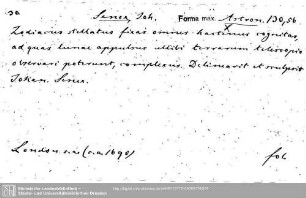 Senex, Joh. Forma max. Astron. 130,56
Zodiacus stellatus fixas omnes hactenus cognitas,
ad quas lunae appulsus ullibi terrarum telescopio
observari poterunt, complexus. Delineavit et sculpsit
Johan. Senex.
London o.J. (c.a. 1690) fol
Sächsische Landesbibliothek -
Staats- und Universitätsbibliothek Dresden